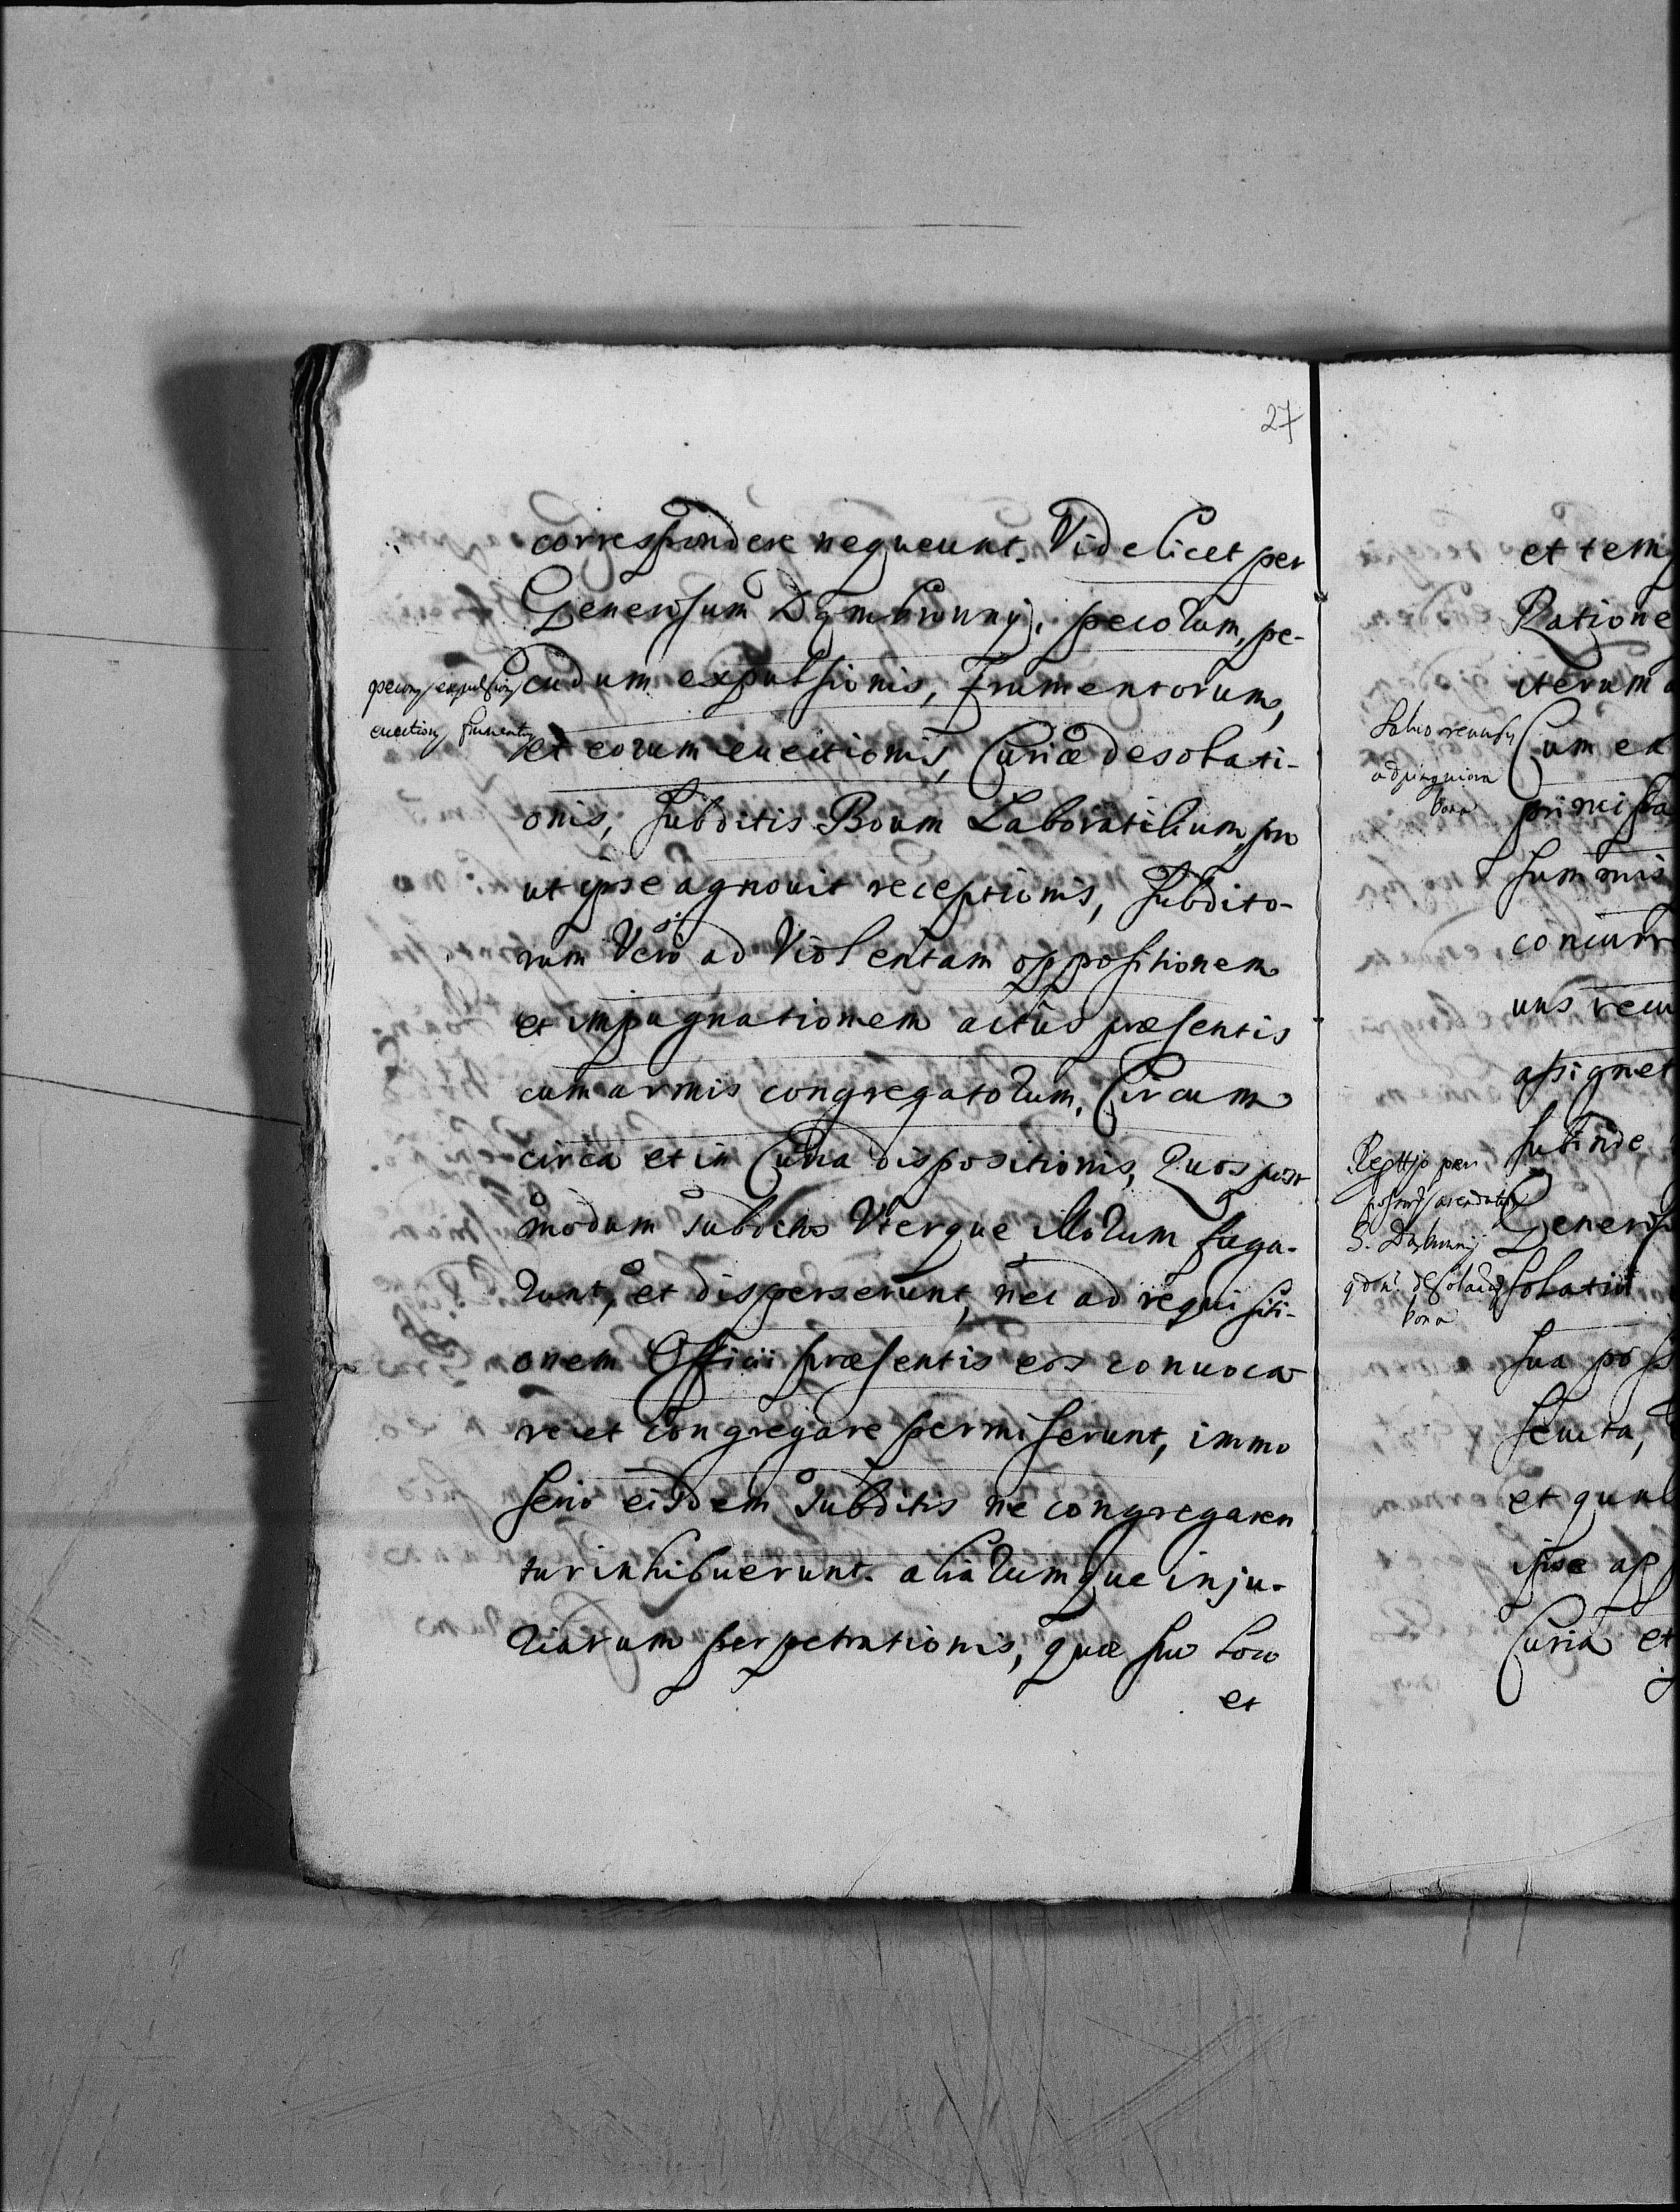 27
correspondere nequeunt. Videlicet per
Generosum Dąmbrowny. pecorum, pe-
cudum expulsionis, frumentorum,
et eorum evectionis, Curiæ desolati-
onis, Subditis Boum Laboratilium, pro
ut ipse agnovit receptionis, Subdito-
rum Vero ad Violentam oppositionem
et impugnationem actus præsentis
cum armis congregatorum, Circum
circa et in Curia dispositionis, Quos post
modum subditos Uterque illorum fuga-
runt, et disperserunt, nec ad requisiti-
onem Officii præsentis eos convoca
re et congregare permiserunt, immo
serio eisdem Subditis ne congregaren
tur inhibuerunt. aliarumque inju-
riarum perpetrationis, quæ suo Loco
et
pecory expulsiony
evectiony frumentory
et tem
Ratione
iterum
Cum ex
princípa
summis
concurr
uns recu
assignet
subinde
Generos
solatio
sua poss
fructa,
et qual
ipse ap
Curia et
ad pinguiora
bona
bona